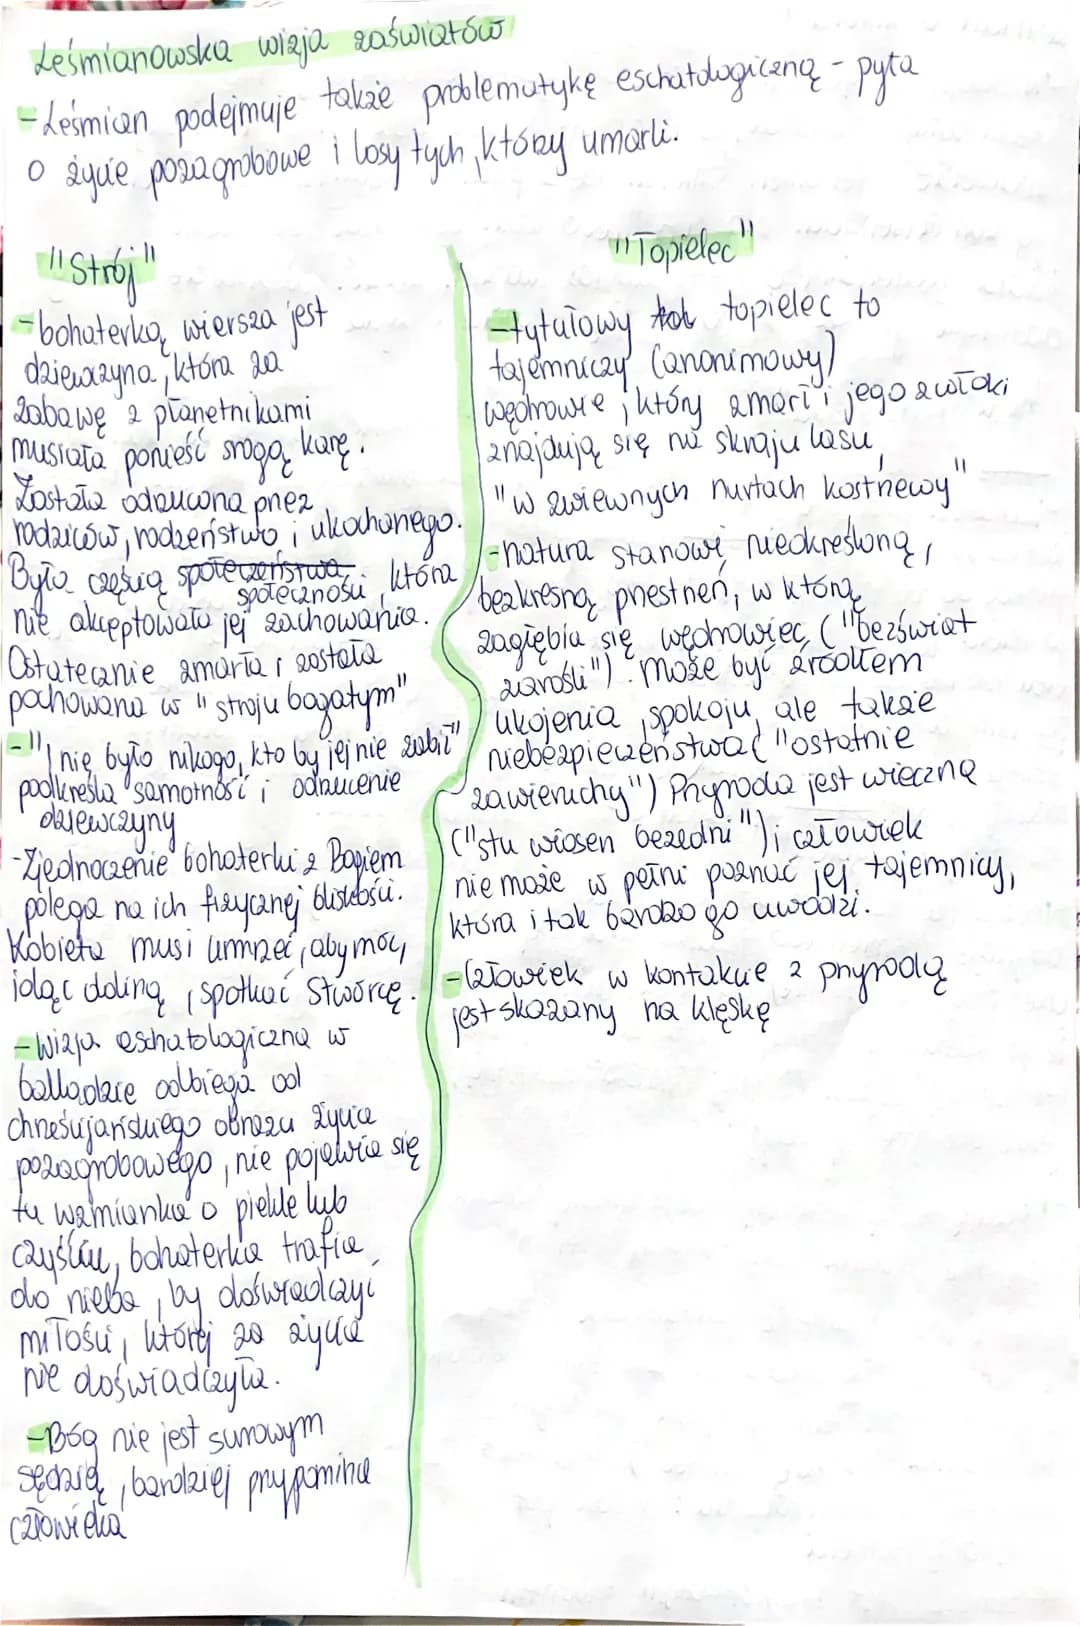 Leśmianowska wizja zaświatów
- Leśmian podejmuje także problematykę eschatologiczną - pyta
o życie pozagrobowe i losy tych, którzy umarli.
"Strój"
- bohaterką wiersza jest
dziewczyna, która za
zabawę z płanetnikami
musiała ponieść srogą karę.
Została odrzucona przez
rodziców, rodzeństwo i ukochanego.
Była częścią społeczeństwa
społeczności, która
nie akceptowała jej zachowania.
Ostatecznie zmarła i została
pochowana w "stroju bogatym"
- "I nie było nikogo, kto by jej nie zubił"
podkreśla samotność i odrzucenie
dziewczyny
- Zjednoczenie bohaterki z Bogiem
polega na ich fizycznej bliskości.
Kobieta musi umrzeć, aby móc,
idąc doliną, spotkać Stwórcę.
- Wizja eschatologiczna w
balladzie odbiega od
chrześcijańskiego obrazu życia
pozagrobowego, nie pojawia się
tu wzmianka o piekle lub
czyśćcu, bohaterka trafia
do nieba, by doświadczyć
miłości, której za życia
nie doświadczyła.
- Bóg nie jest surowym
sędzią, bardziej przypomina
człowieka
"Topielec"
- tytułowy topielec to
tajemniczy (anonimowy)
wędrowiec, który zmarł i jego zwłoki
znajdują się na skraju lasu,
"w zwiewnych nurtach kostrzewy"
- natura stanowi nieokreśloną,
bezkresną przestrzeń, w którą
zagłębia się wędrowiec ("bezświat
zarośli"). Może być źródłem
ukojenia, spokoju, ale także
niebezpieczeństwa ("ostatnie
zawieruchy") Przyroda jest wieczna
("stu wiosen bezedni") i człowiek
nie może w pełni poznać jej tajemnicy,
która i tak bardzo go uwodzi.
- Człowiek w kontakcie z przyrodą
jest skazany na klęskę